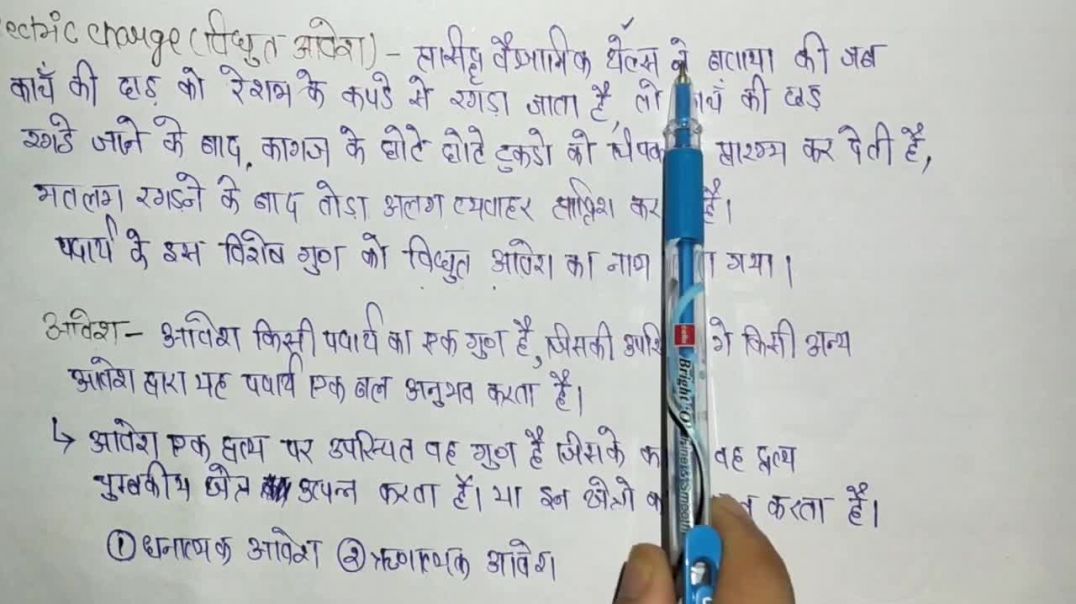 ectric charge (विधुत आवेश) - वैज्ञानिक थेल्स ने बताया की जब
काचँ की छड़ को रेशम के कपडे से रगडा़ जाता है, तो की छड़
रगडे जाने के बाद, कागज के छोटे छोटे टुकडो को कर देती है,
मतलब रगड़ने के बाद तोडा अलग व्यवाहर कर है।
पदार्थ के इस विशेष गुण को विधुत आवेश का नाम गया।
आवेश - आवेश किसी पदार्थ का एक गुण है, जिसकी किसी अन्य
आवेश द्वारा यह पदार्थ एक बल अनुभव करता है।
↳ आवेश एक द्रव्य पर उपस्थित वह गुण है जिसके वह द्रव्य
चुम्बकीय उत्पन्न करता है। या इन करता है।
① धनात्मक आवेश ② ऋणात्मक आवेश
Bright